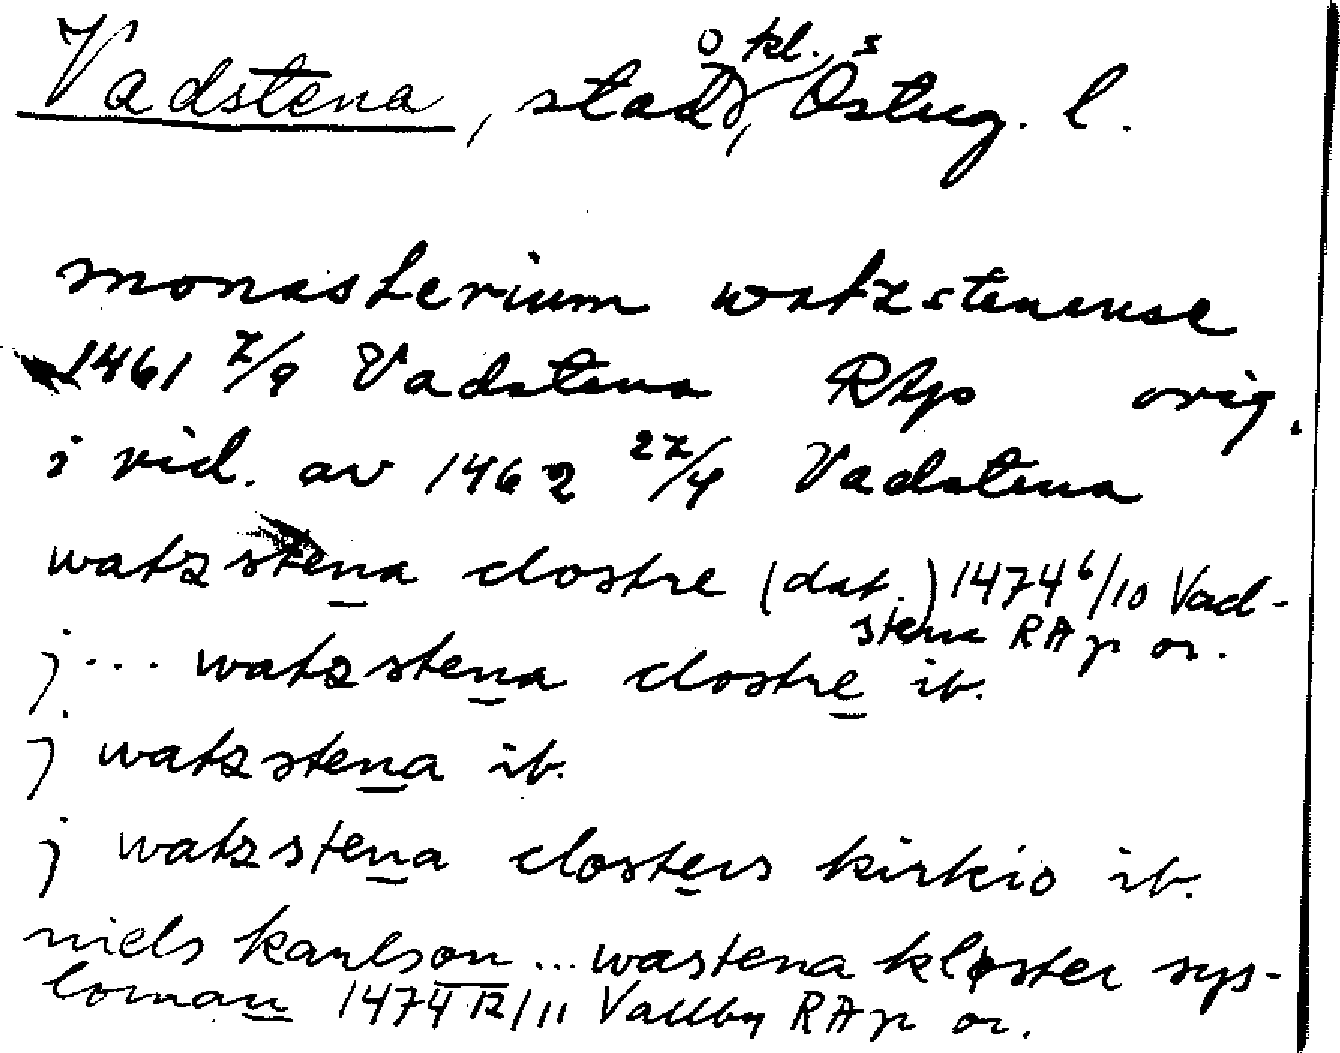 Vadstena, stad o kl., Östergs. l.
monasterium watzstenense
1461 7/9 Vadstena RAp orig.
i vid. av 1462 27/4 Vadstena
watzstena clostre (dat.) 1474 6/10 Vad-
stena RAp or.
j ... watzstena clostre ib.
j watzstena ib.
j watzstena closters kirkio ib.
niels karlson ... wastena kloster sys-
loman 1474 12/11 Vallby RAp or.